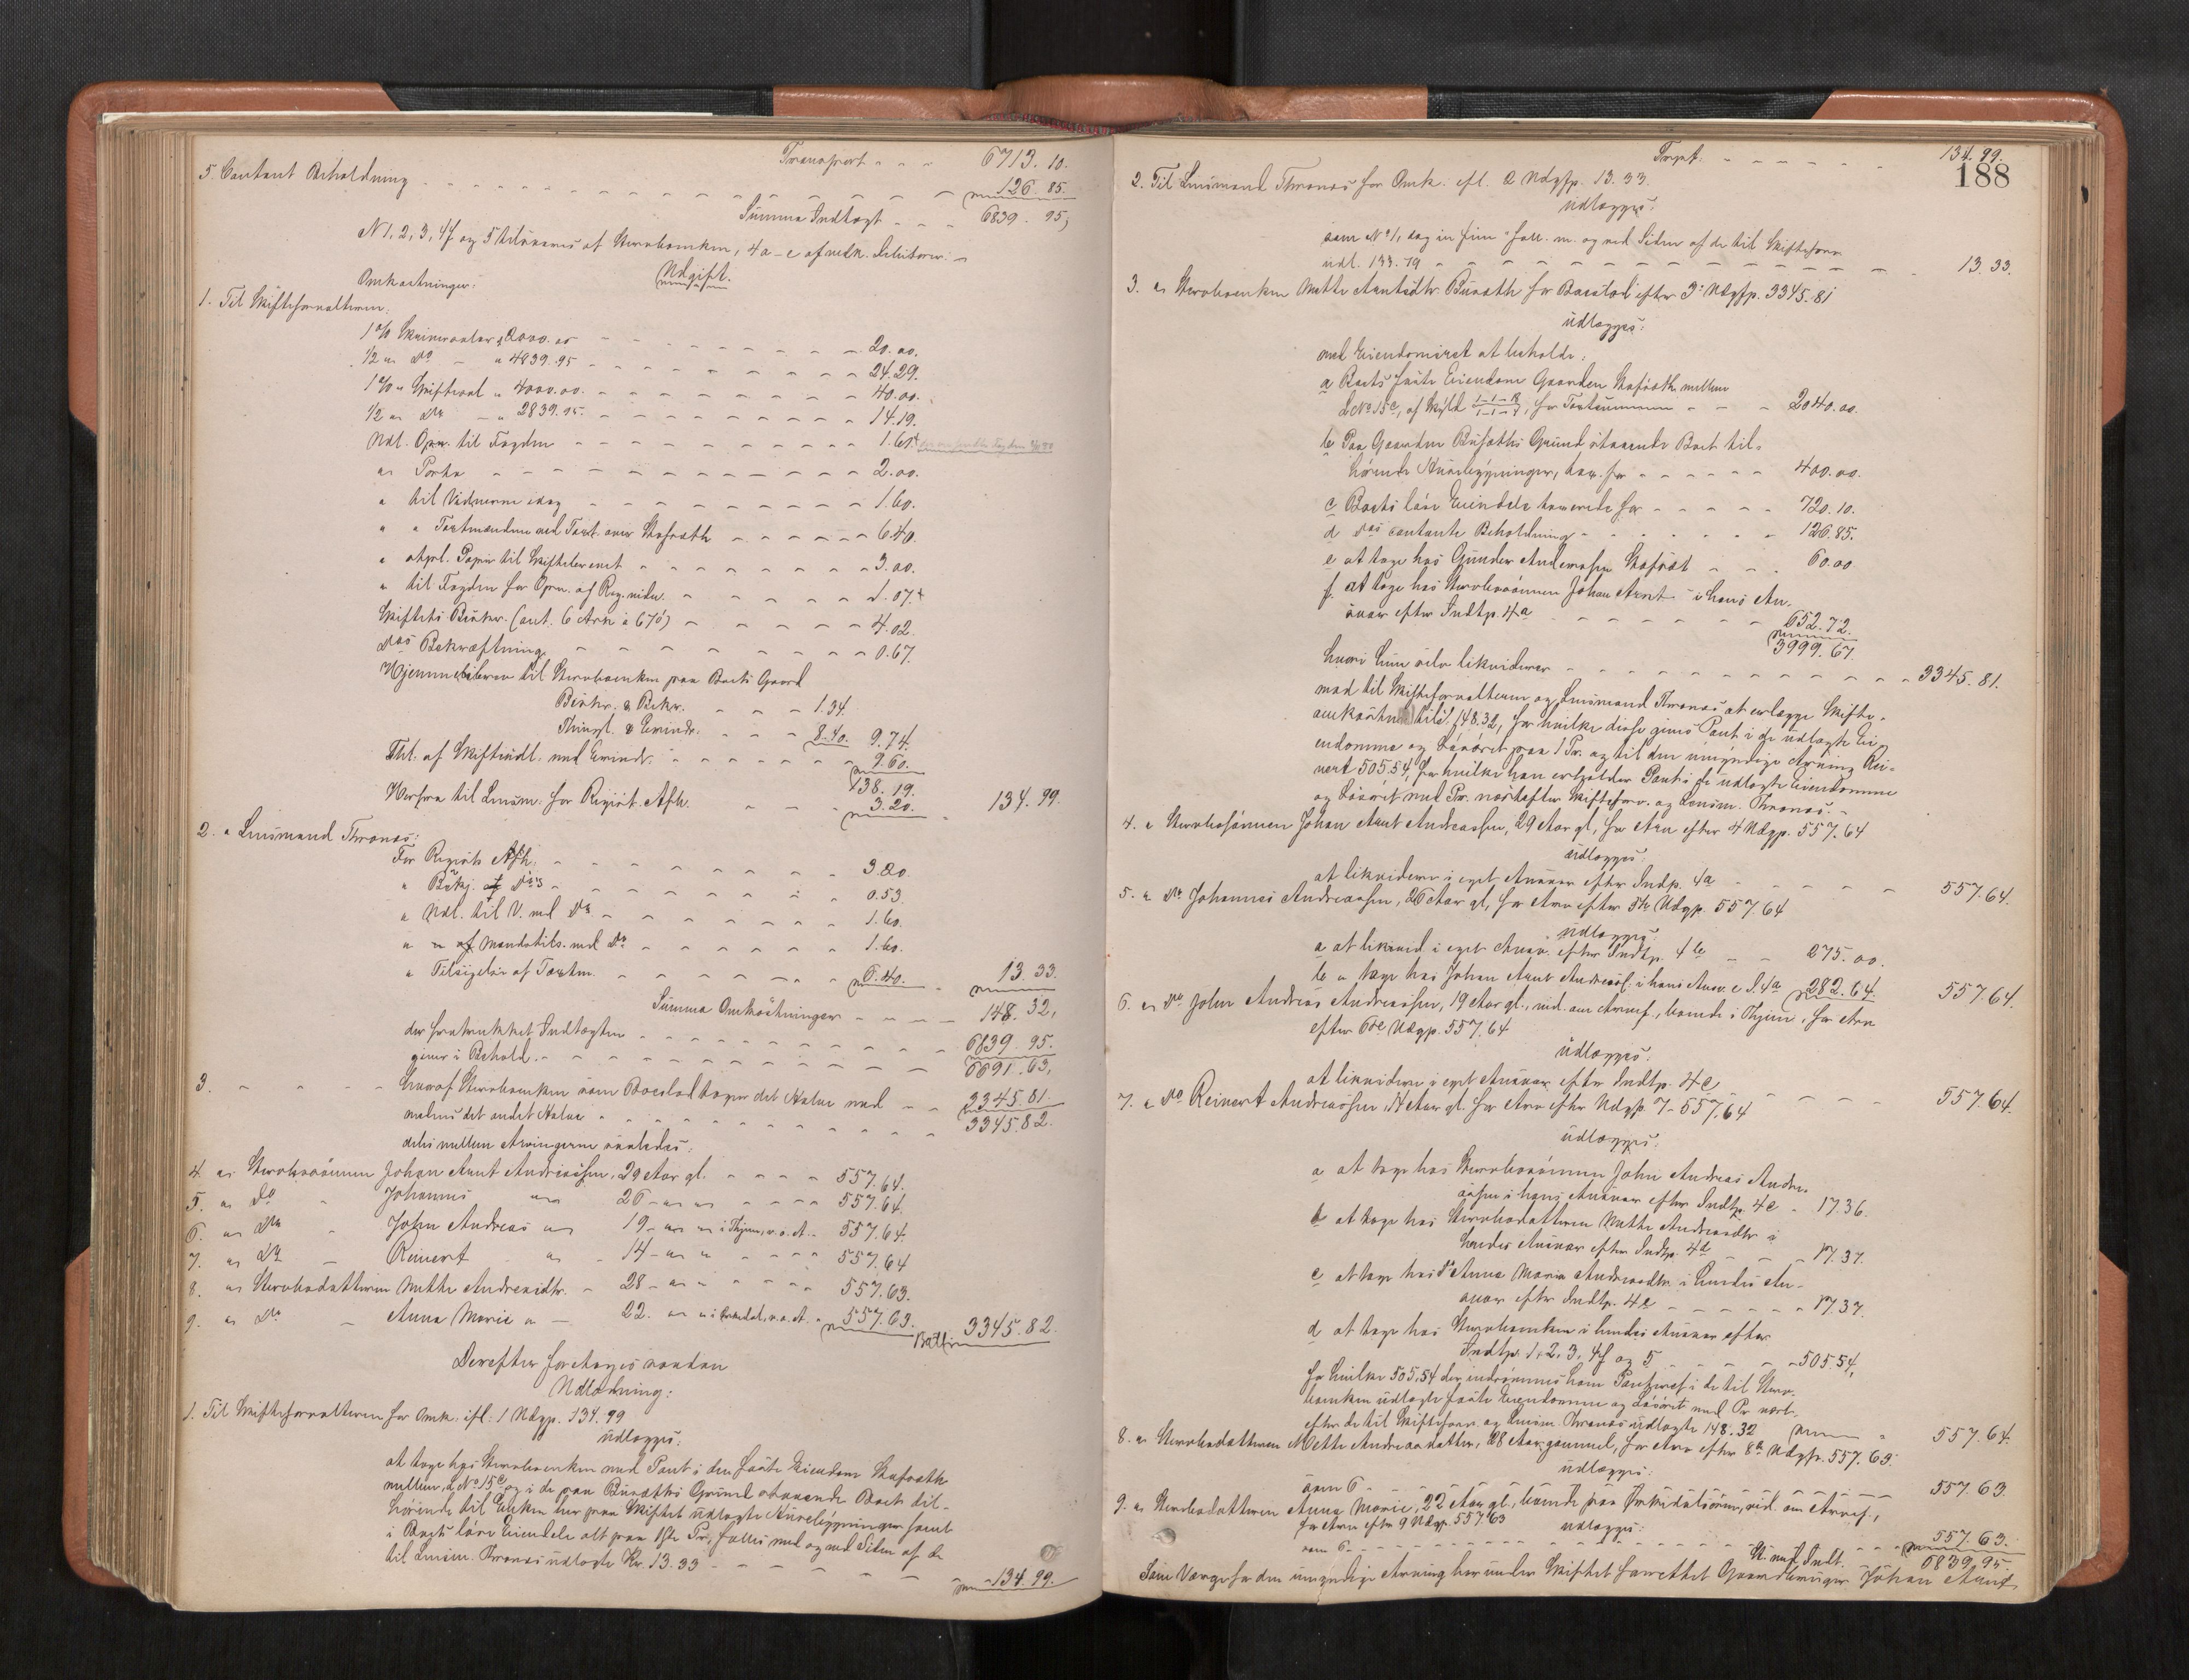 Transport - - - 6713. 10.
5. Contant Beholdning - - - 126. 85.
Summa Indtægt - - - 6839. 95,
N 1, 2, 3, 4f og 5 af Stervboenken, 4a-e af vedk. Debitorer.
Udgift.
Omkostninger:
1. Til Skifteforvalteren
1 % Skriversalær af 2000.00 - - - 20.00.
1/2 " Do - " 4839.95 - - - 24.29.
1 % " Skifteral " 4000.00. - - - 40.00.
1/2 " Do - " 2839.95. - - - 14.19.
Udl. Opn. til Fogden - - - 1.61
" Porto - - - 2.00.
" til Vidnerne idag - - - 1.60.
" " Taxtmændene ved Taxt. over Stafsæth - - - 6.40.
" stpl. Papir til Skiftebrevet - - - 3.00.
" til Fogden for Opn. af Reg. - - - 1.07.
Skiftets Beskr. (ant. 6 Ark à 67 ö) - - - 4.02.
Dets Bekræftning - - - 0.67.
Hjemmelsbrev til Stervboenken paa Boets Gaard
Beskr. & Bekr. - - - 1.34
Thingl. & Erindr. - - - 8.40. 9.74.
Tht. af Skifteudl. med Erindr. - - - 9.60.
138. 19.
Herfra til Lensm. for Regist. Afh. - - - 3.20. 134. 99.
2. " Lensmand Thronæs:
For Registr. Afh. - - - 3.20.
" Beskj. af Do - - - 0.53.
" Udl. til V. ved Do - - - 1.60.
" " af Mandstils. ved Do - - - 1.60.
" Tilsigelse af Taxtm. - - - 6.40. 13. 33.
Summa Omkostninger - - - 148. 32,
der fratrukket Indtægten - - - 6839. 95.
giver i Behold. - - - 6691. 63,
3. - - - hvoraf Stervboenken som Boeslod tager det Halve med - - 3345.81.
medens det andet Halve - - - 3345.82.
deles mellem Arvingerne saaledes:
4. " Stervbosönnen Johan Arnt Andreassen, 29 Aar gl. - - - 557.64.
5. " Do - Johannes " 26 - " " - - - 557.64.
6. " Do - John Andreas " 19 - " " i Thjen. - 557.64.
7. " Do - Reinert " 14 - " " - - - 557.64
8. " Stervbodatteren Mette Andreasdtr. - 28 - " " - - - 557.63.
9. " Do - Anna Marie " - 22. " " - 557.63. 3345.82.
Derefter foretoges saadan
Udlodning:
1. Til Skifteforvalteren for Omk. efl. 1 Udgp. 134.99
udlægges:
at tage hos Stervboenken med Pant i den faste Eiendom Stafsæth
mellem, L No 15c og i de paa Busæths Grund staaende Boet til-
hørende til Enken her paa Skiftet udlagte Huusebygninger samt
i Boets løse Eiendele alt paa 1ste Pr., fælles med og ved Siden af de
til Lensm. Thronæs udlagte Kr. 13.33 - - - 134. 99.
Trpt. - - - 134. 99.
188
2. Til Lensmand Thronæs for Omk. efl. 2 Udgp. 13.33.
udlægges:
som No 1, dog in fine: fæll. m. og ved Siden af de til Skifteforv.
udl. 134.99 - - - 13. 33.
3. " Stervboenken Mette Arntsdtr. Busæth for Boeslod efter 3: Udgp. 3345.81
udlægges:
med Eiendomsret at beholde:
a Boets faste Eiendom Gaarden Stafsæth mellem
L No 15c, af Skyld for Taxtsummen - - - 2040.00.
b Paa Gaarden Busæths Grund staaende Boet til-
hørende Huusebygninger, tax. for - - - 400.00.
c Boets løse Eiendele taxerede for - - - 720.10.
d Dets contante Beholdning - - - 126.85.
e at tage hos Gunder Andersen Stafsæt - - - 60.00
f. at tage hos Stervbosönnen Johan Arnt i hans An-
svar efter Indtp. 4a - - - 652.72.
3999.67.
hvori hun selv likviderer - - - 3345. 81.
mod til Skifteforvalteren og Lensmand Thronæs at erlægge Skifte-
omkostn. tils. 148.32, for hvilke disse gives Pant i de udlagte Ei-
endomme og Løsøret paa 1 Pr. og til den umyndige Arving Rei-
nert 505.54, for hvilke han erholder Pant i de udlagte Eiendomme
og Løsøret med Pr. næstefter Skifteforv. og Lensm. Thronæs. -
4. " Stervbosönnen Johan Arnt Andreassen, 29 Aar gl., for Arv efter 4 Udgp. 557.64
udlægges:
at likvidere i eget Ansvar efter Indtp. 4a - - - 557. 64.
5. " Do Johannes Andreassen, 26 Aar gl., for Arv efter 5te Udgp. 557.64
udlægges:
a at likvid. i eget Ansv. efter Indtp. 4b - - 275.00.
b " tage hos Johan Arnt Andreass. i hans Ansv. e I. 4a 282.64. 557.64.
6. " Do John Andreas Andreassen, 19 Aar gl., vid. om Arvef., boende i Thjen., for Arv
efter 6te Udgp. 557.64
udlægges:
at likvidere i eget Ansvar efter Indtp. 4c - - - 557.64.
7. " Do Reinert Andreassen, 14 Aar gl. for Arv efter Udgp. 7 - 557.64
udlægges:
a at tage hos Stervbosönnen John Andreas Andre-
assen i hans Ansvar efter Indtp. 4c - 17.36.
b at tage hos Stervbodatteren Mette Andreasdtr. i
hendes Ansvar efter Indtp. 4d - - - 17.37.
c at tage hos Do Anna Marie Andreasdtr. i hendes An-
svar efter Indtp. 4e - - - 17.37.
d at tage hos Stervboenken i hendes Ansvar efter
Indtp. 1, 2, 3, 4f og 5 - - - 505.54,
for hvilke 505,54 der indrømmes ham Panteret i de til Sterv-
boenken udlagte faste Eiendomme og Løsøret med Pr. næst-
efter de til Skifteforv. og Lensm. Thronæs udlagte 148.32 557.64.
8. " Stervbodatteren Mette Andreasdatter, 28 Aar gammel, for Arv efter 8de Udgp. 557.63.
udlægges:
som 6 - - - 557. 63.
9. " Stervbodatteren Anna Marie, 22 Aar gl., boende paa vid. om Arvef.,
for Arv efter 9 Udgp. 557.63
udlægges:
som 6 - - - 557. 63.
St. med Indt. - - - 6839.95
Som Værge for den umyndige Arving har under Skiftet forrettet Gaardbruger Johan Arnt